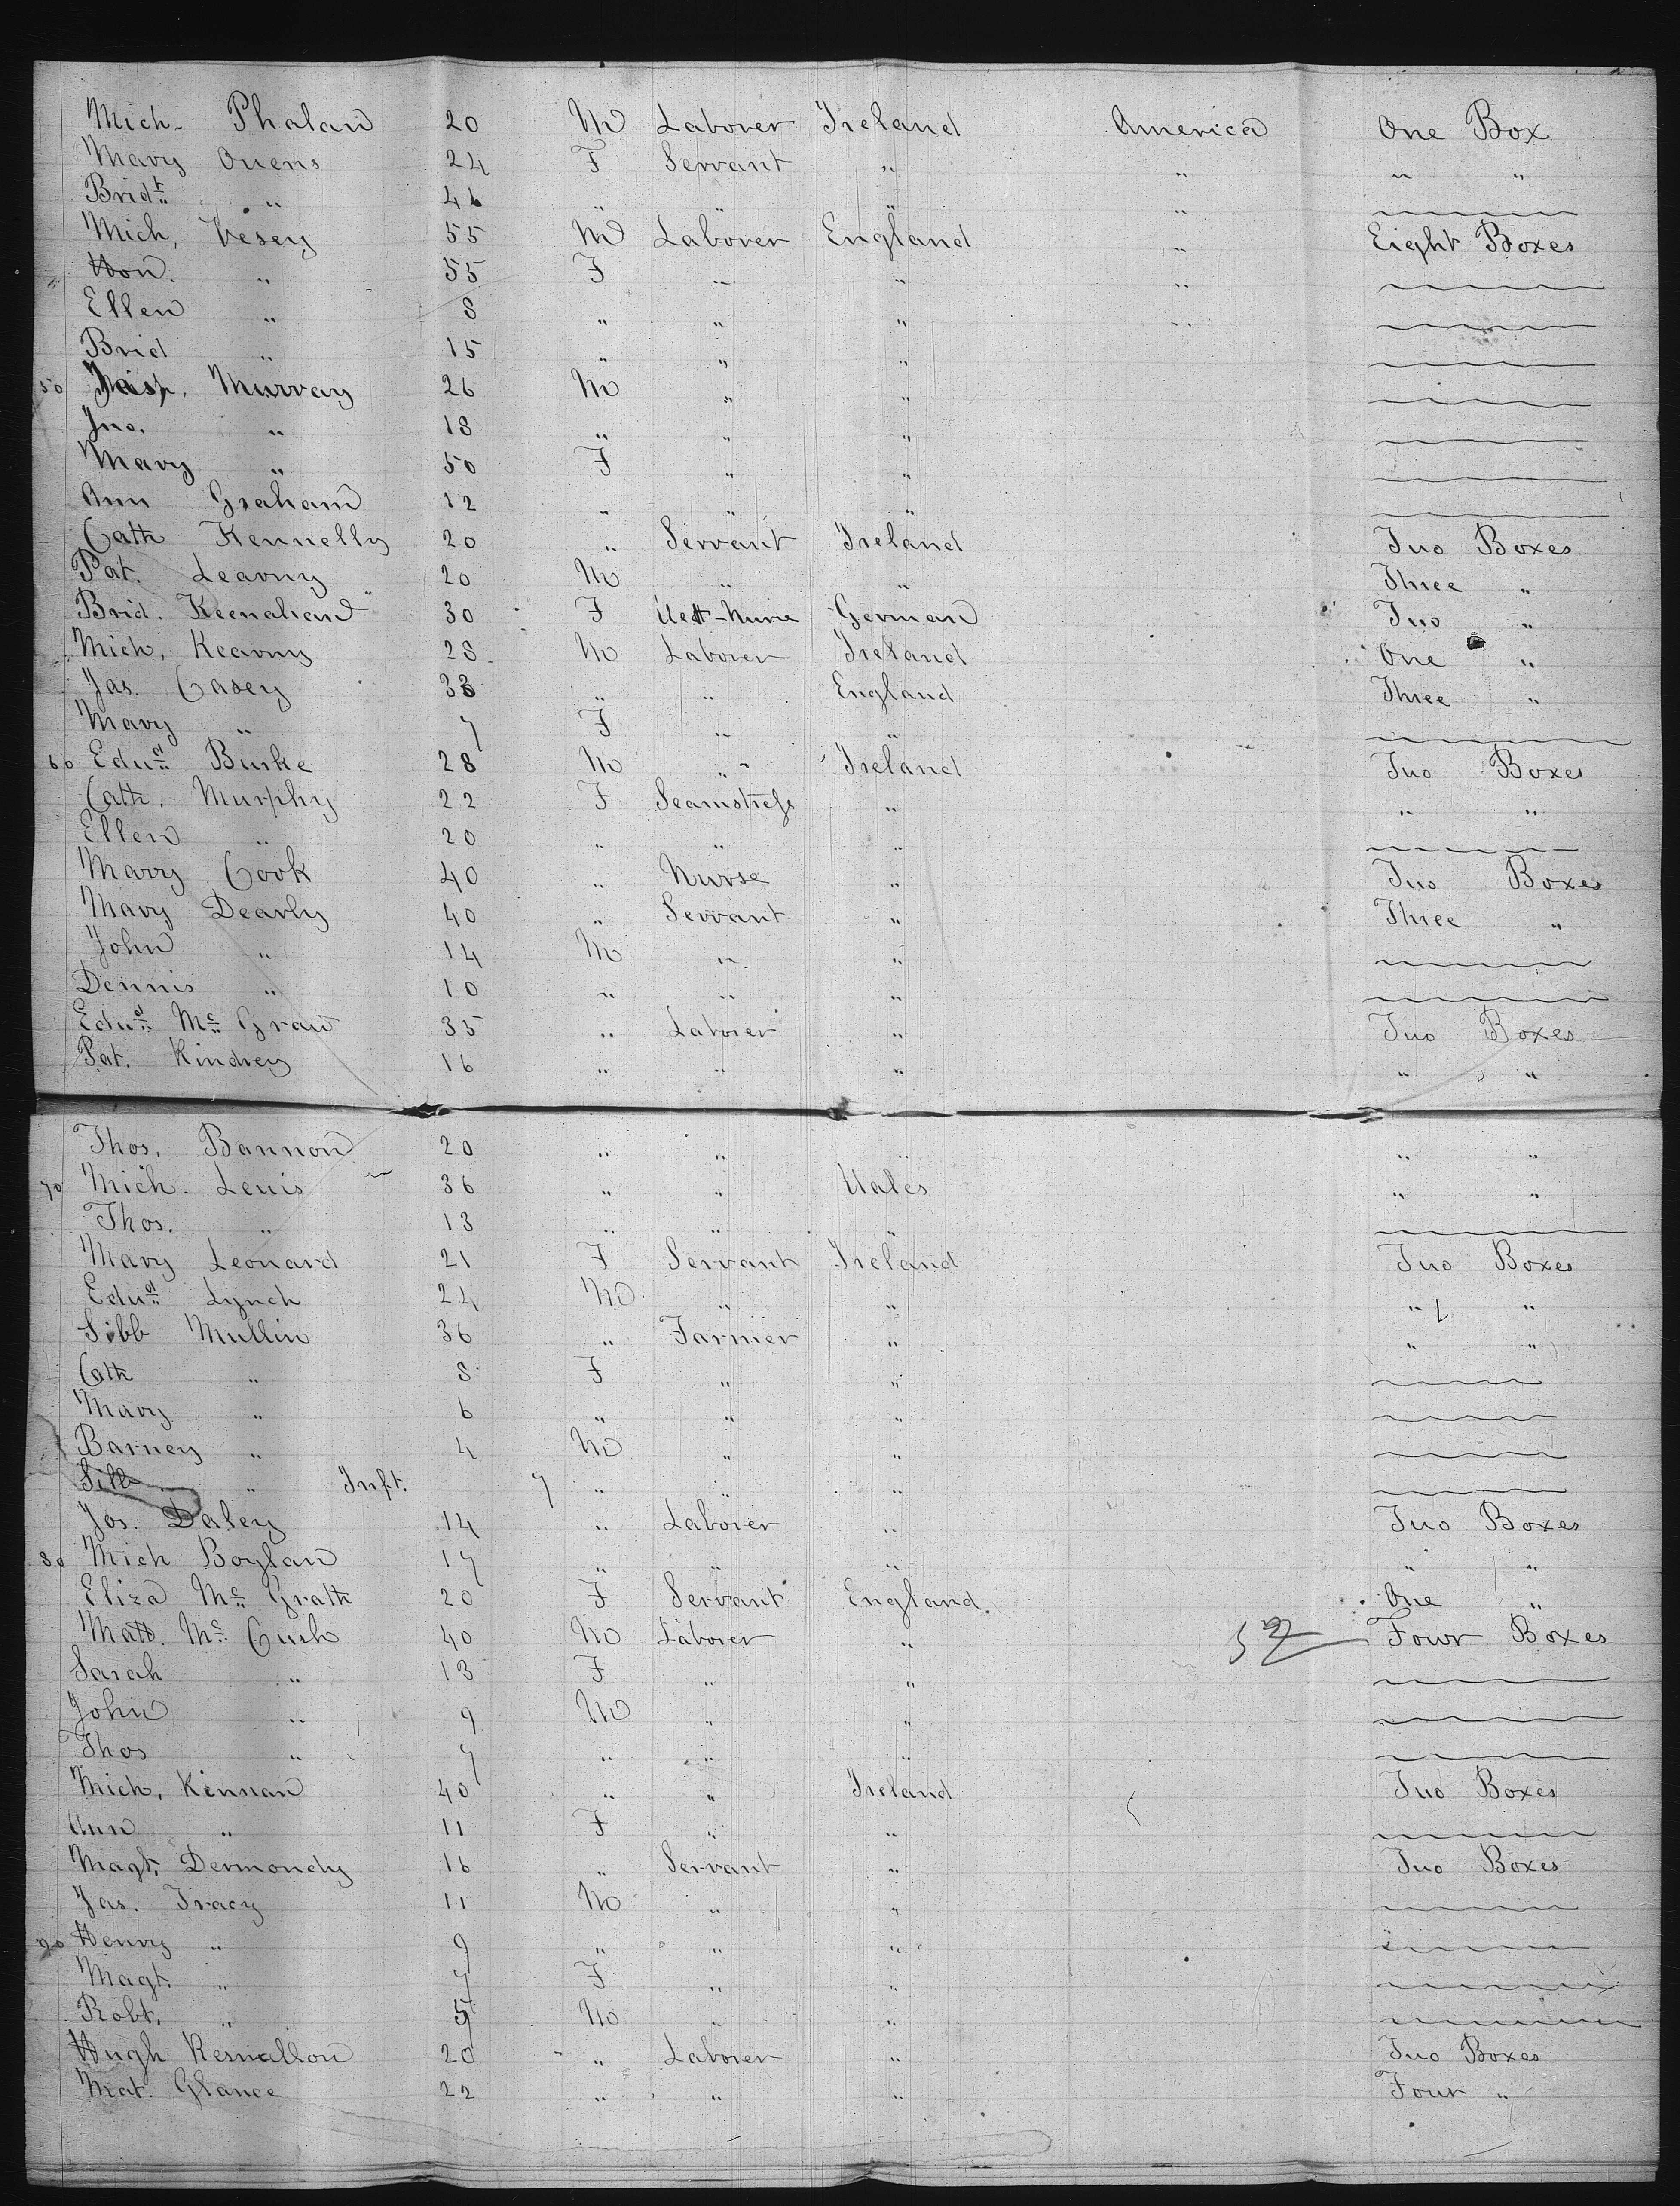 Mich. Phalan 20 M Laborer Ireland America One Box
Mary Owens 24 F Servant " " " "
Bridt " 46 " " "
Mich, Vesey 55 M Laborer England " Eight Boxes
Hon. " 55 F " " "
Ellen " 8 " " " "
Brid " 15 " " "
50 Murray 26 M " "
Jno. " 18 " " "
Mary " 50 F " "
Ann Graham 12 " " "
Cath Kennelly 20 " Servant Ireland Two Boxes
Pat. Learny 20 M " " Three "
Brid. Keenahan 30 F Wett-Nurse German Two "
Mich, Kearny 28 M Laborer Ireland One "
Jas. Casey 33 " " England Three "
Mary " 7 F " "
60 Edwd Burke 28 M " Ireland Two Boxes
Cath, Murphy 22 F Seamstress " " "
Ellen " 20 " " "
Mary Cook 40 " Nurse " Two Boxes
Mary Dearly 40 " Servant " Three "
John " 14 M " "
Dennis " 10 " " "
Edwd Mc Graw 35 " Laborer " Two Boxes
Pat. Kindrey 16 " " " " "
Thos. Bannon 20 " " " " "
70 Mich. Lewis 36 " " Wales " "
Thos. " 13 " " "
Mary Leonard 21 F Servant Ireland Two Boxes
Edwd Lynch 24 M " " " "
Sibb Mullin 36 " Farmer " " "
Cath " 8 F " "
Mary " 6 " " "
Barney " 4 M " "
" Inft. 7 " " "
Jos. Daley 14 " Laborer " Two Boxes
80 Mich Boylan 17 " " " " "
Eliza Mc Grath 20 F Servant England. One "
Matt. Mc Cush 40 M Laborer " Four Boxes
Sarah " 13 F " "
John " 9 M " "
Thos " 7 " " "
Mich, Kinnan 40 " " Ireland Two Boxes
Ann " 11 F " "
Magt. Dermondy 16 " Servant " Two Boxes
Jas. Tracy 11 M " "
90 Henry " 9 " " "
Magt. " 7 F " "
Robt. " 5 M " "
Hugh Resnallon 20 " Laborer " Two Boxes
Mat. Glance 22 " " " Four "